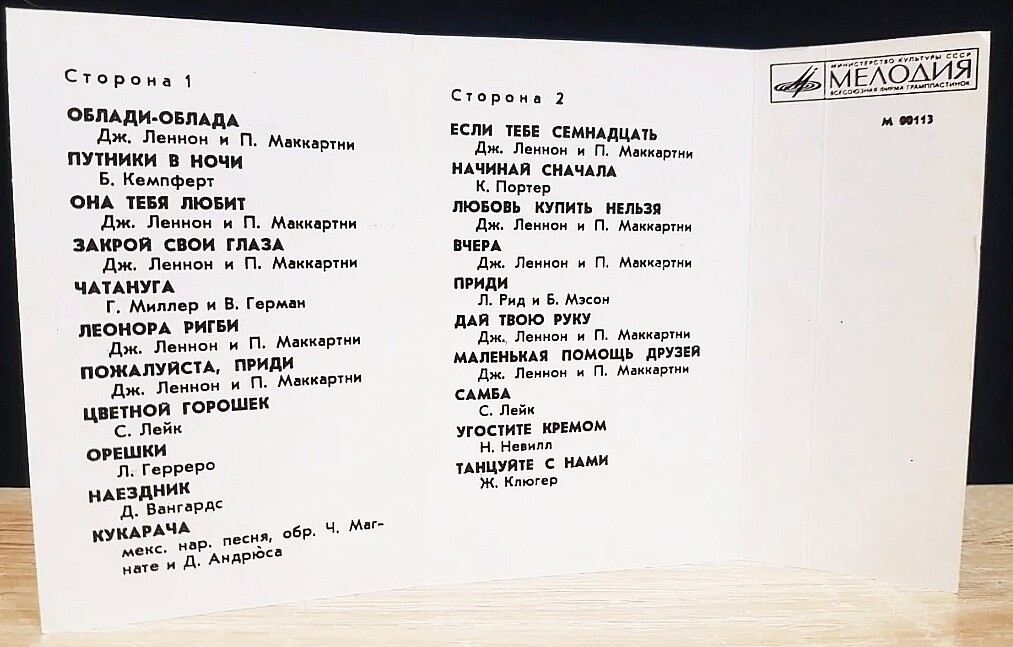 Сторона 1
ОБЛАДИ-ОБЛАДА
Дж. Леннон и П. Маккартни
ПУТНИКИ В НОЧИ
Б. Кемпферт
ОНА ТЕБЯ ЛЮБИТ
Дж. Леннон и П. Маккартни
ЗАКРОЙ СВОИ ГЛАЗА
Дж. Леннон и П. Маккартни
ЧАТАНУГА
Г. Миллер и В. Герман
ЛЕОНОРА РИГБИ
Дж. Леннон и П. Маккартни
ПОЖАЛУЙСТА, ПРИДИ
Дж. Леннон и П. Маккартни
ЦВЕТНОЙ ГОРОШЕК
С. Лейк
ОРЕШКИ
Л. Герреро
НАЕЗДНИК
Д. Вангардс
КУКАРАЧА
мекс. нар. песня, обр. Ч. Маг-
нате и Д. Андрюса
Сторона 2
ЕСЛИ ТЕБЕ СЕМНАДЦАТЬ
Дж. Леннон и П. Маккартни
НАЧИНАЙ СНАЧАЛА
К. Портер
ЛЮБОВЬ КУПИТЬ НЕЛЬЗЯ
Дж. Леннон и П. Маккартни
ВЧЕРА
Дж. Леннон и П. Маккартни
ПРИДИ
Л. Рид и Б. Мэсон
ДАЙ ТВОЮ РУКУ
Дж. Леннон и П. Маккартни
МАЛЕНЬКАЯ ПОМОЩЬ ДРУЗЕЙ
Дж. Леннон и П. Маккартни
САМБА
С. Лейк
УГОСТИТЕ КРЕМОМ
Н. Невилл
ТАНЦУЙТЕ С НАМИ
Ж. Клюгер
МИНИСТЕРСТВО КУЛЬТУРЫ СССР
МЕЛОДИЯ
ВСЕСОЮЗНАЯ ФИРМА ГРАМПЛАСТИНОК
М 00113